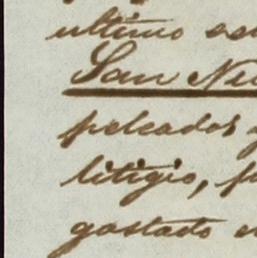 ultimo
San
peleados
litigio,
gastado